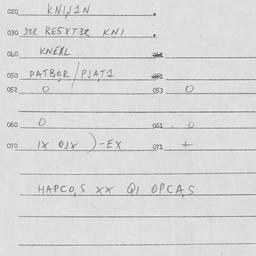 020 KNIJ1N .
030 D3R RE5YT3R KNI .
040 KNEAL
050 DATBOR/PJAT1 051
052 0 053 0
060 0 061 0
070 1X OJX )-EX 071 +
HAPCO,S XX QI OPCA,S